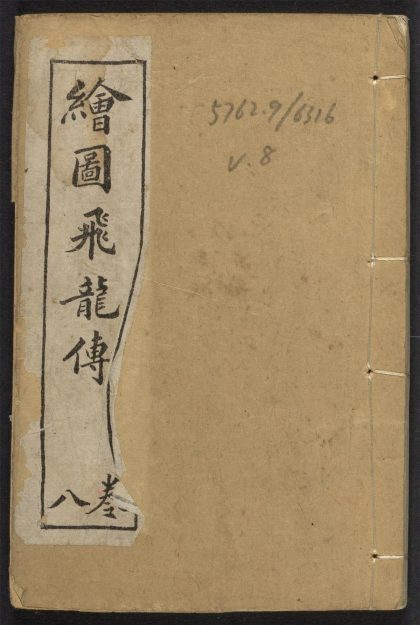 繪圖飛龍傳
卷八
5762.9/6316
v.8